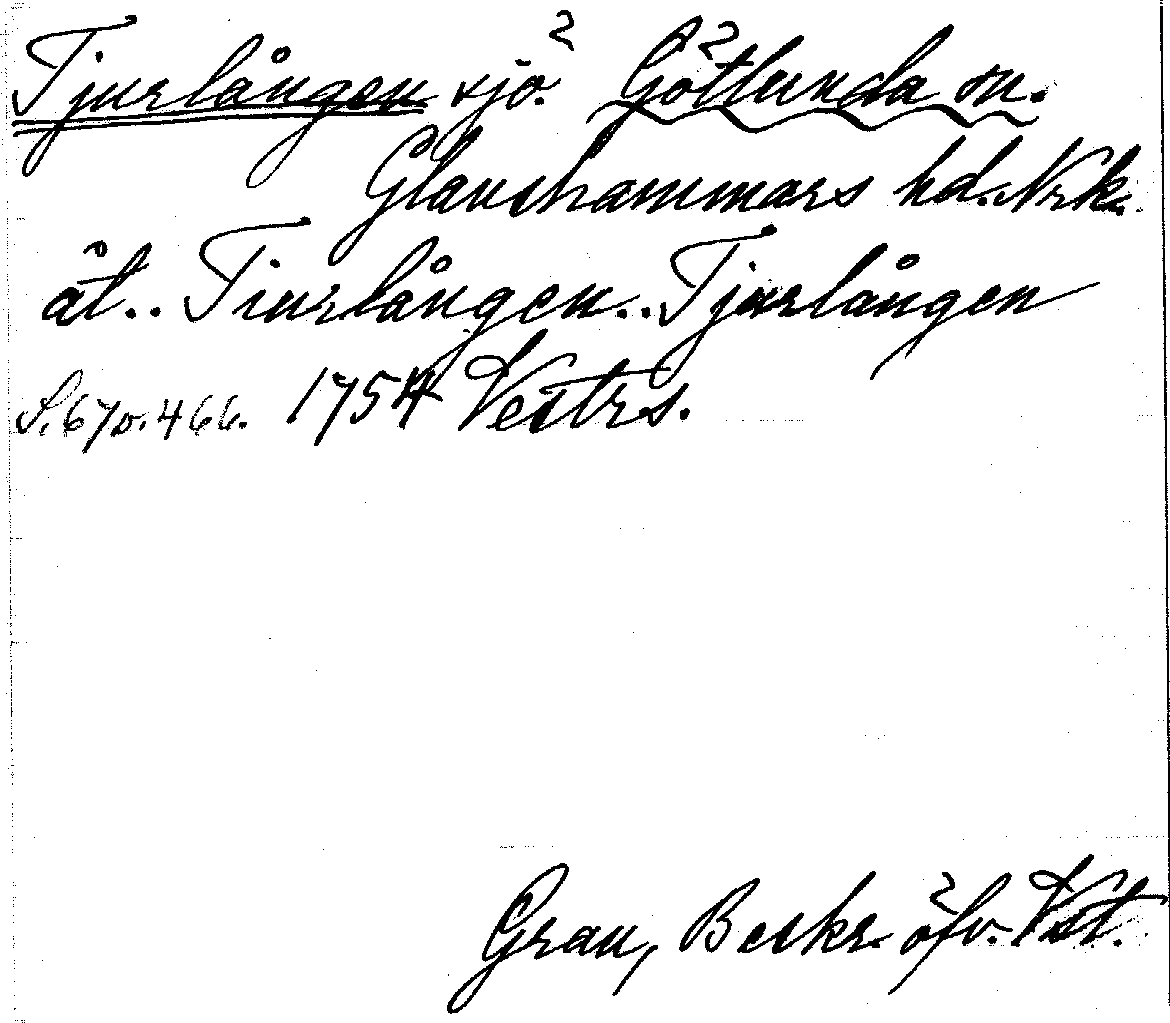 Tjurlången sjö. Götlunda sn.
Glanshammars hd. Nrk.
åt.. Tiurlången.. Tjurlången
S. 67 o. 466. 1754 Vestrs.
Grau, Beskr. öfv. Vstl.